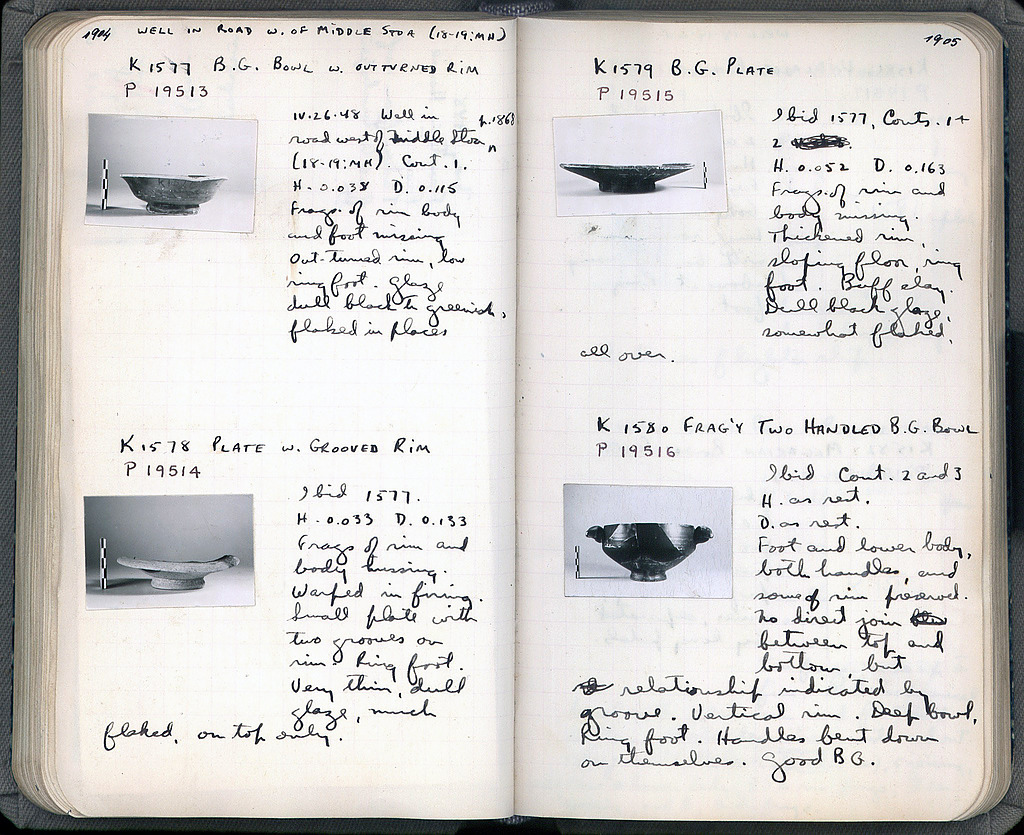 1904 WELL IN ROAD W. OF MIDDLE STOA (18-19:MH)
K 1577 B.G. BOWL W. OUTTURNED RIM
P 19513
IV.26.48 Well in p.1868
road west of Middle Stoa
(18-19:MH). Cont. 1.
H. 0.038 D. 0.115
Frags. of rim body
and foot missing
Out-turned rim, low
ring foot. Glaze
dull black to greenish,
flaked in places
K 1578 PLATE W. GROOVED RIM
P 19514
Ibid 1577.
H. 0.033 D. 0.133
Frags of rim and
body missing.
Warped in firing.
Small plate with
two grooves on
rim. Ring foot.
Very thin, dull
glaze, much
flaked, on top only.
1905
K 1579 B.G. PLATE
P 19515
Ibid 1577, Conts. 1+
2
H. 0.052 D. 0.163
Frags. of rim and
body missing.
Thickened rim,
sloping floor, ring
foot. Buff clay.
Dull black glaze,
somewhat flaked,
all over.
K 1580 FRAG'Y TWO HANDLED B.G. BOWL
P 19516
Ibid Cont. 2 and 3
H. as rest.
D. as rest.
Foot and lower body,
both handles, and
some of rim preserved.
No direct join
between top and
bottom, but
relationship indicated by
groove. Vertical rim. Deep bowl,
Ring foot. Handles bent down
on themselves. Good BG.